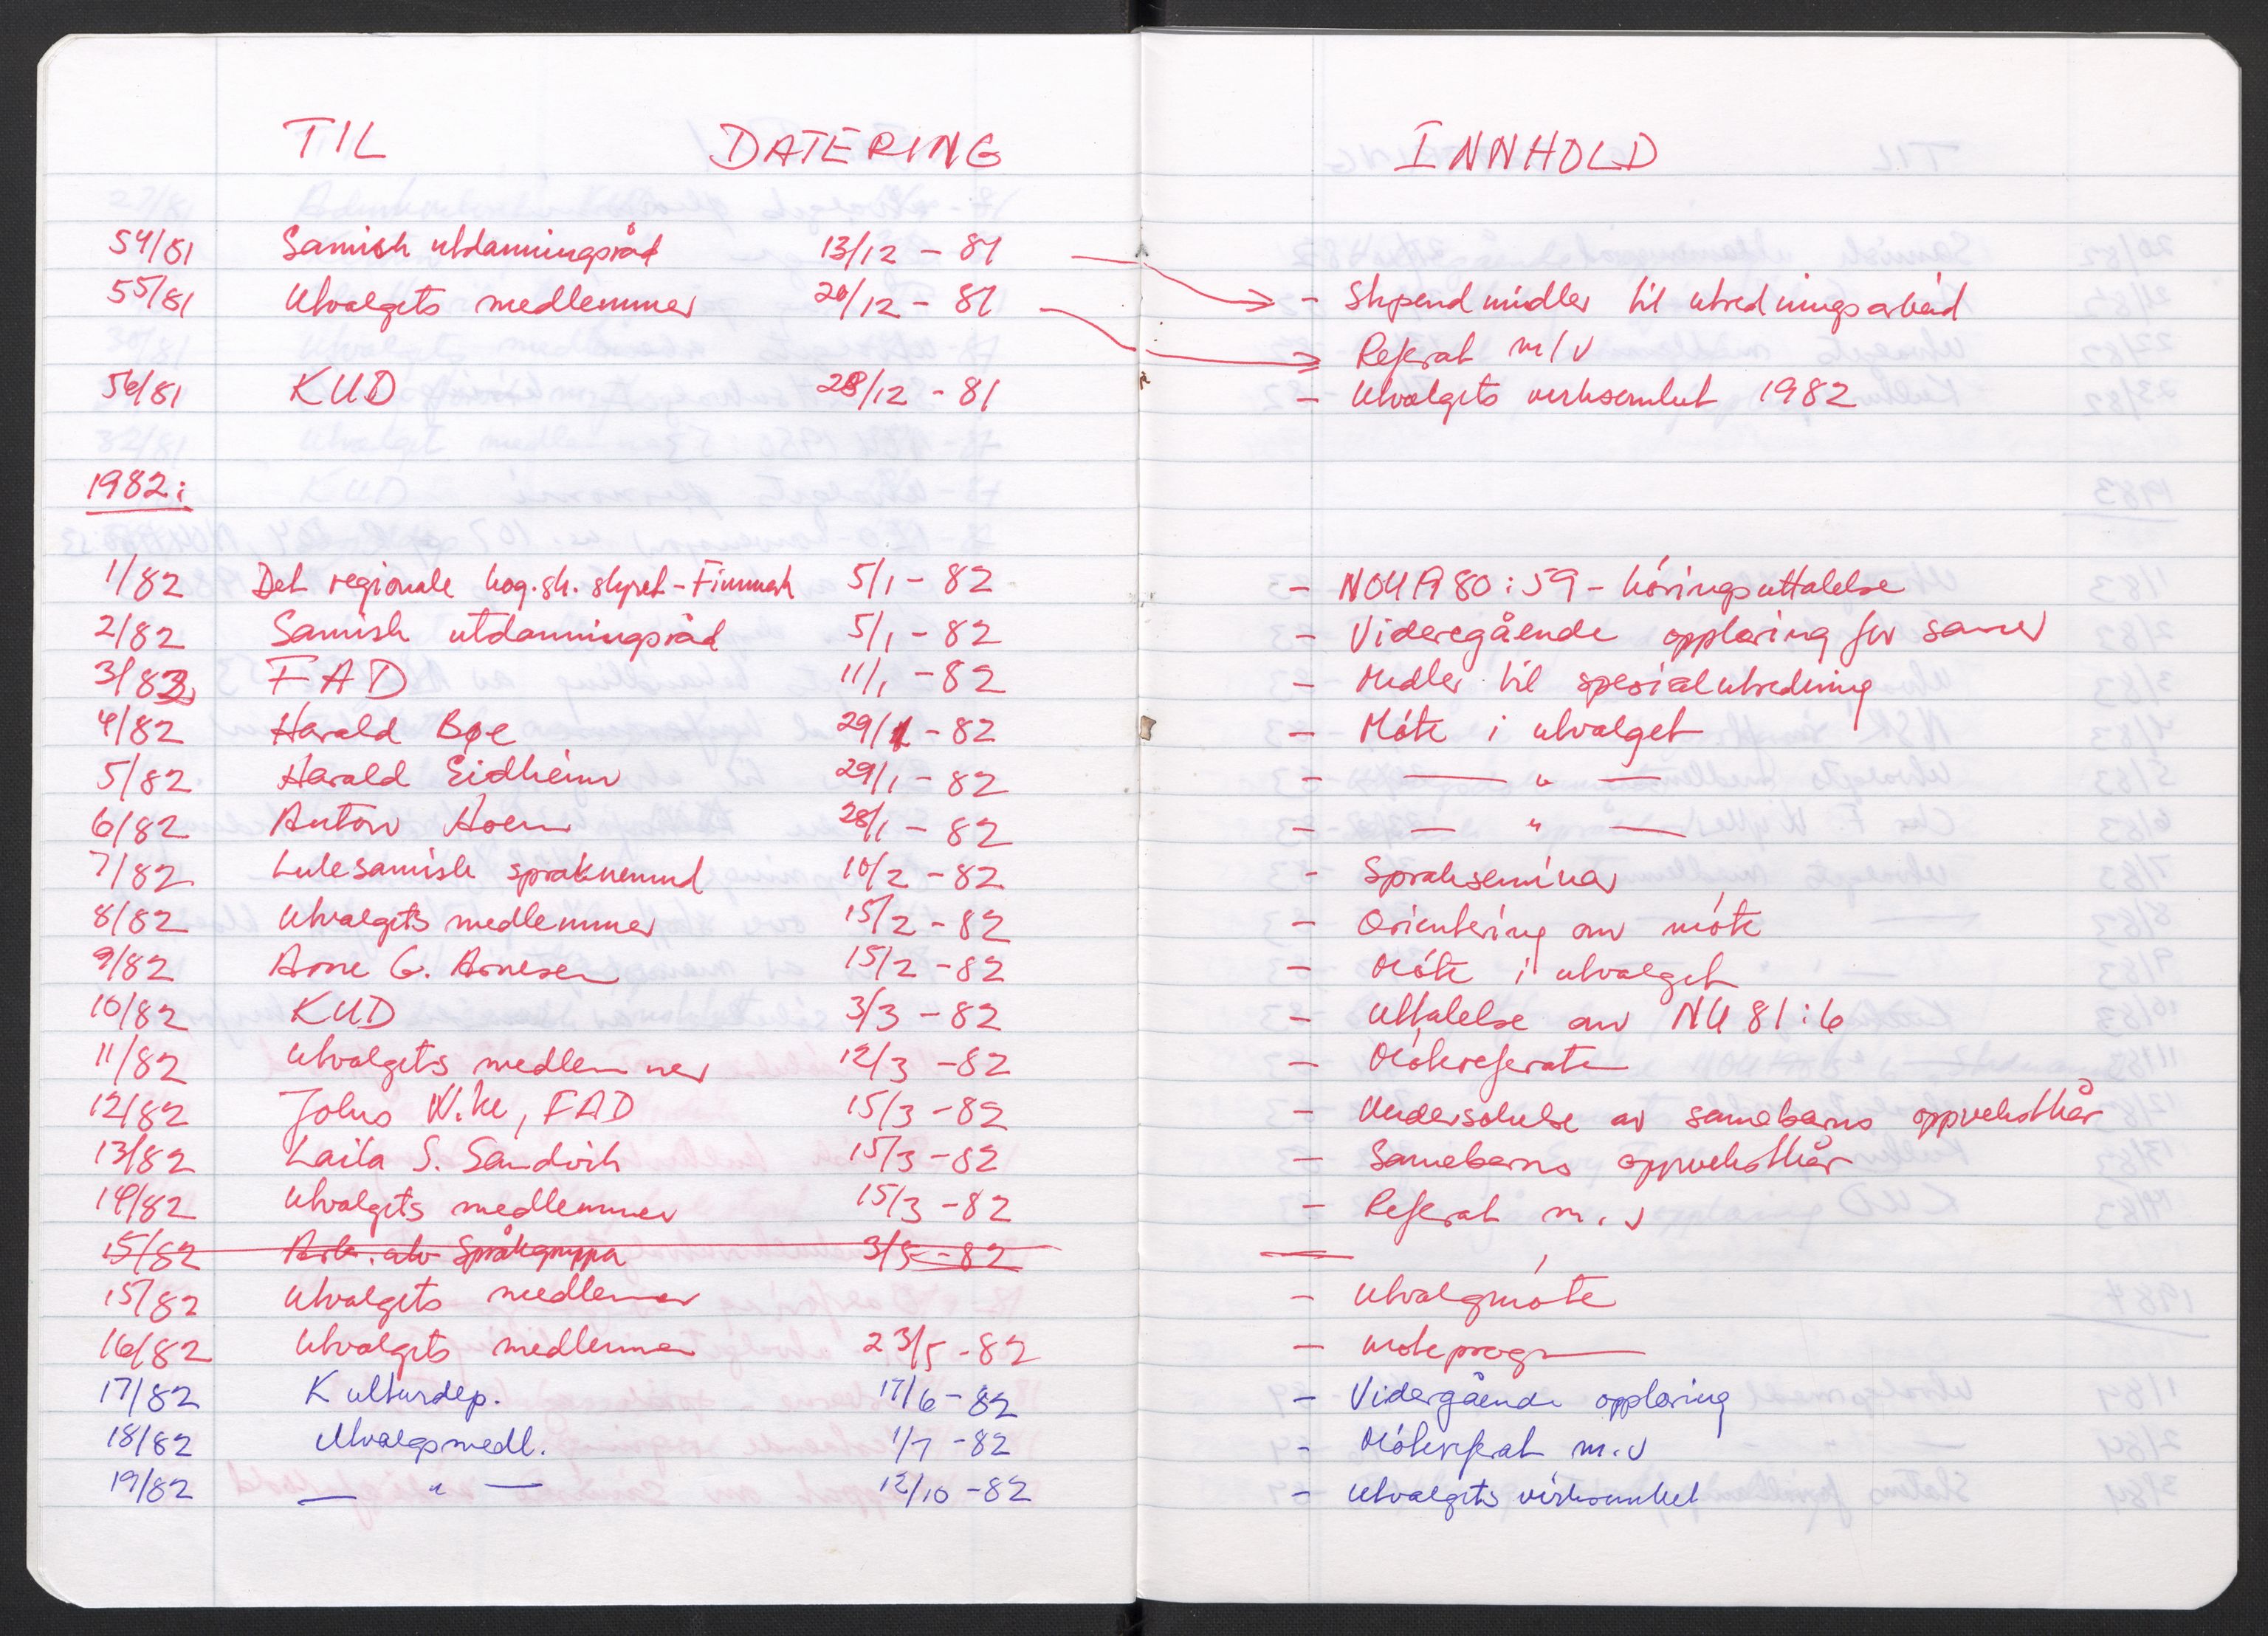 TIL DATERING INNHOLD
54/81 Samisk utdanningsråd 13/12 - 81
55/81 Utvalgets medlemmer 20/12 - 81 - Stipendmidler til utredningsarbeid
- Referat m/v
56/81 KUD 28/12 - 81 - Utvalgets virksomhet 1982
1982:
1/82 Det regionale høg.sk. styret - Finnmark 5/1 - 82 - NOU 1980:59 - høringsuttalelse
2/82 Samisk utdanningsråd 5/1 - 82 - Videregående opplæring for samer
3/82 FAD 11/1 - 82 - Midler til spesialutredning
4/82 Harald Bøe 29/1 - 82 - Møte i utvalget
5/82 Harald Eidheim 29/1 - 82 - — " —
6/82 Anton Hoem 28/1 - 82 - — " —
7/82 Lulesamisk språknemnd 10/2 - 82 - Språkseminar
8/82 Utvalgets medlemmer 15/2 - 82 - Orientering om møte
9/82 Arne G. Arnesen 15/2 - 82 - Møte i utvalget
10/82 KUD 3/3 - 82 - Uttalelse om NU 81:6
11/82 Utvalgets medlemmer 12/3 - 82 - Møtereferater
12/82 Johs Wike, FAD 15/3 - 82 - Undersøkelse av samebarns oppvekstkår
13/82 Laila S. Sandvik 15/3 - 82 - Samebarns oppvekstkår
14/82 Utvalgets medlemmer 15/3 - 82 - Referat m.v
15/82 Språkgruppa 3/5 - 82 —
15/82 Utvalgets medlemmer - Utvalgmøte
16/82 Utvalgets medlemmer 23/5 - 82 - møteprogr—
17/82 Kulturdep. 17/6 - 82 - Vidergående opplæring
18/82 Utvalgsmedl. 1/7 - 82 - Møtereferat m.v
19/82 — " — 12/10 - 82 - Utvalgets virksomhet